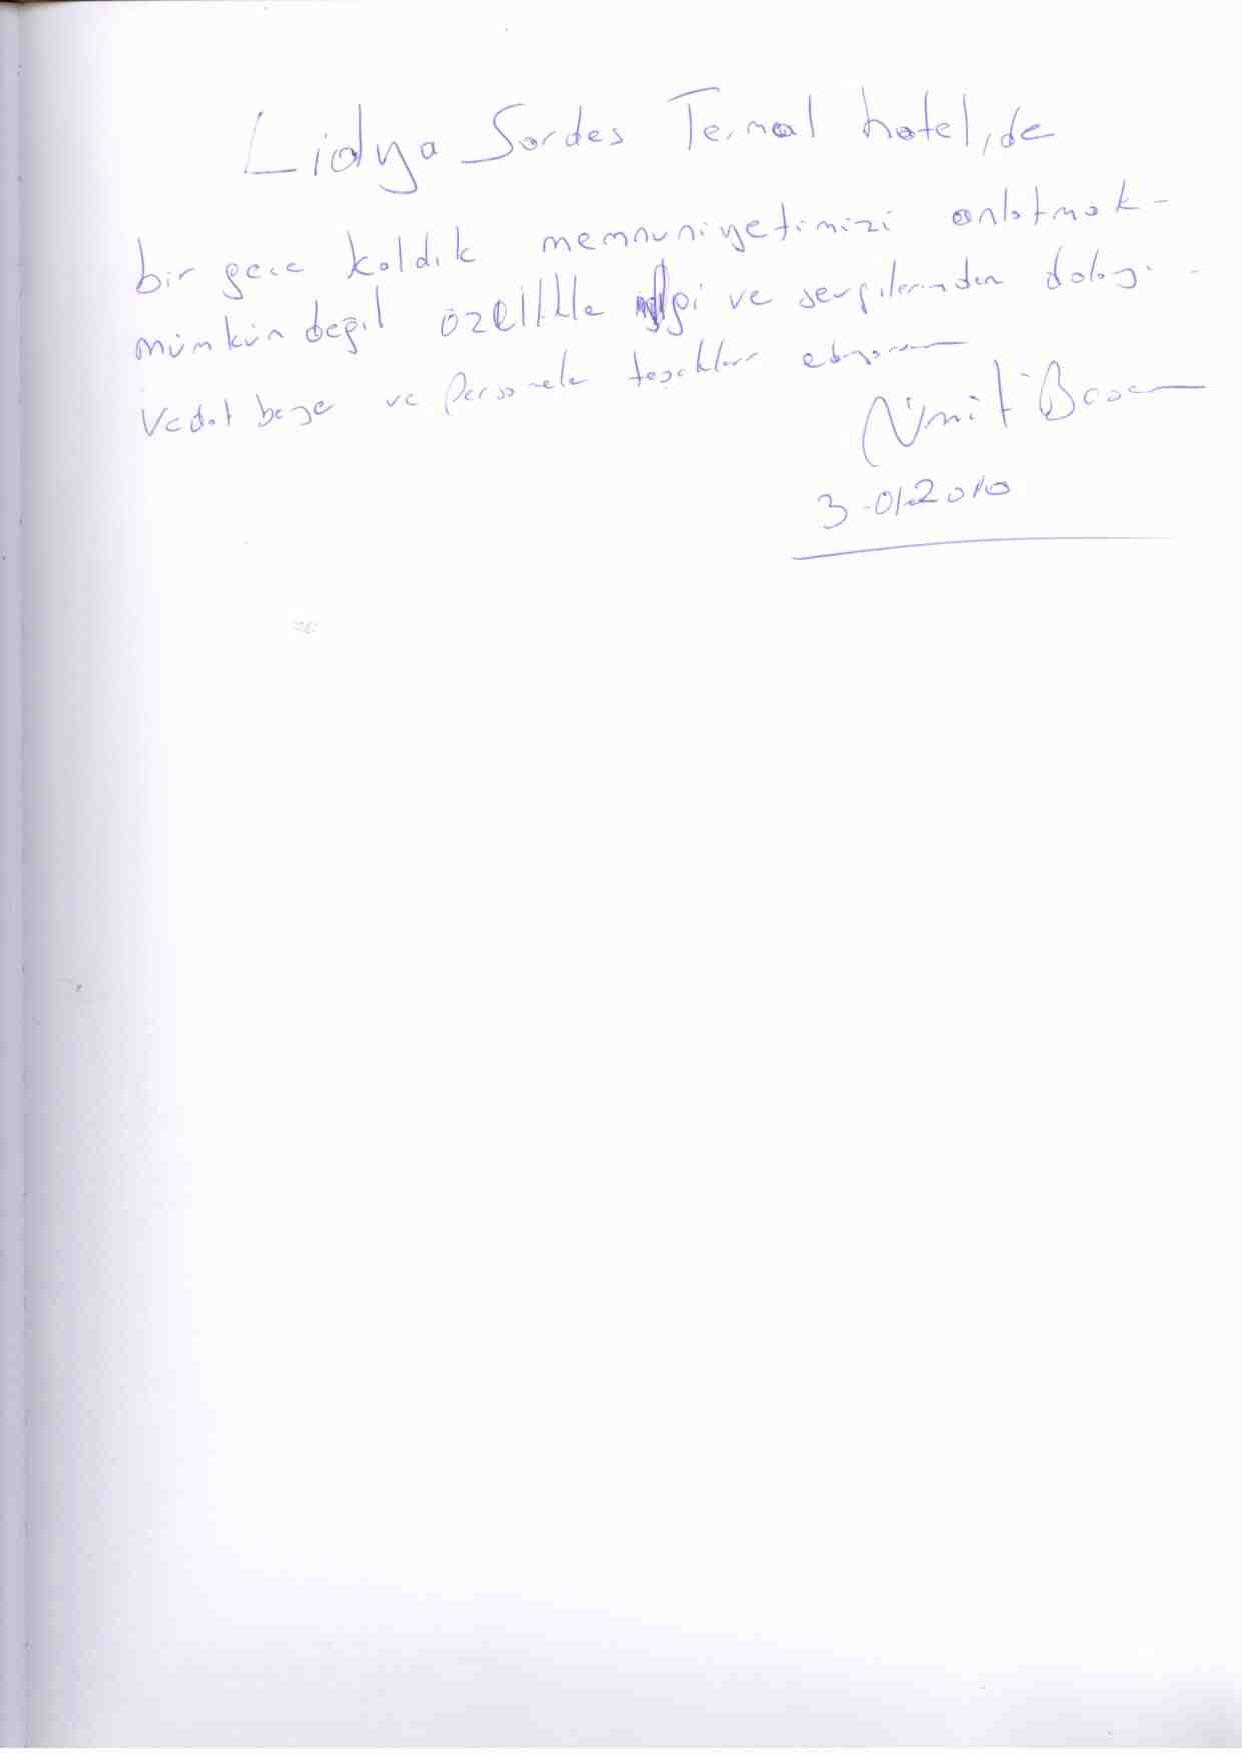 Lidya Sardes Termal hotel,de
bir gece kaldık memnuniyetimizi anlatmak-
mümkün değil özellikle ilgi ve sevgilerinden dolayı -
Vedat beye ve Personele teşekkür ediyorum
Ümit
3-01-2010